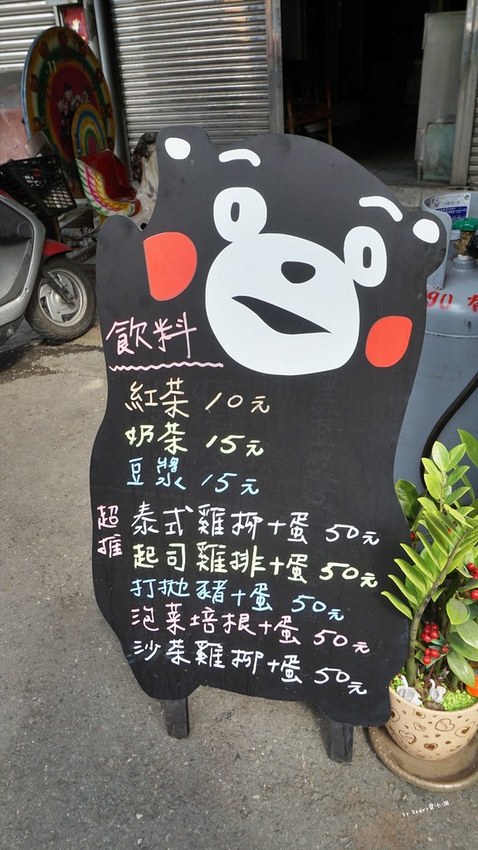 飲料
紅茶 10元
奶茶 15元
豆漿 15元
超推
泰式雞柳+蛋 50元
起司雞排+蛋 50元
打拋豬+蛋 50元
泡菜培根+蛋 50元
沙茶雞柳+蛋 50元
90